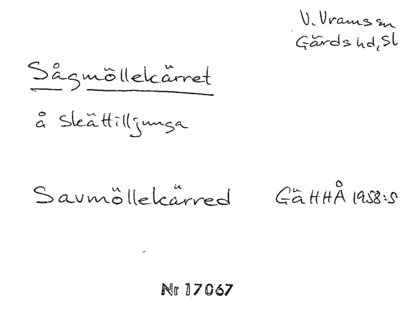 V. Vrams sn
Gärds hd, Sk
Sågmöllekärret
å Skättilljunga
Savmöllekärred GäHHÅ 1958:5
Nr 17067